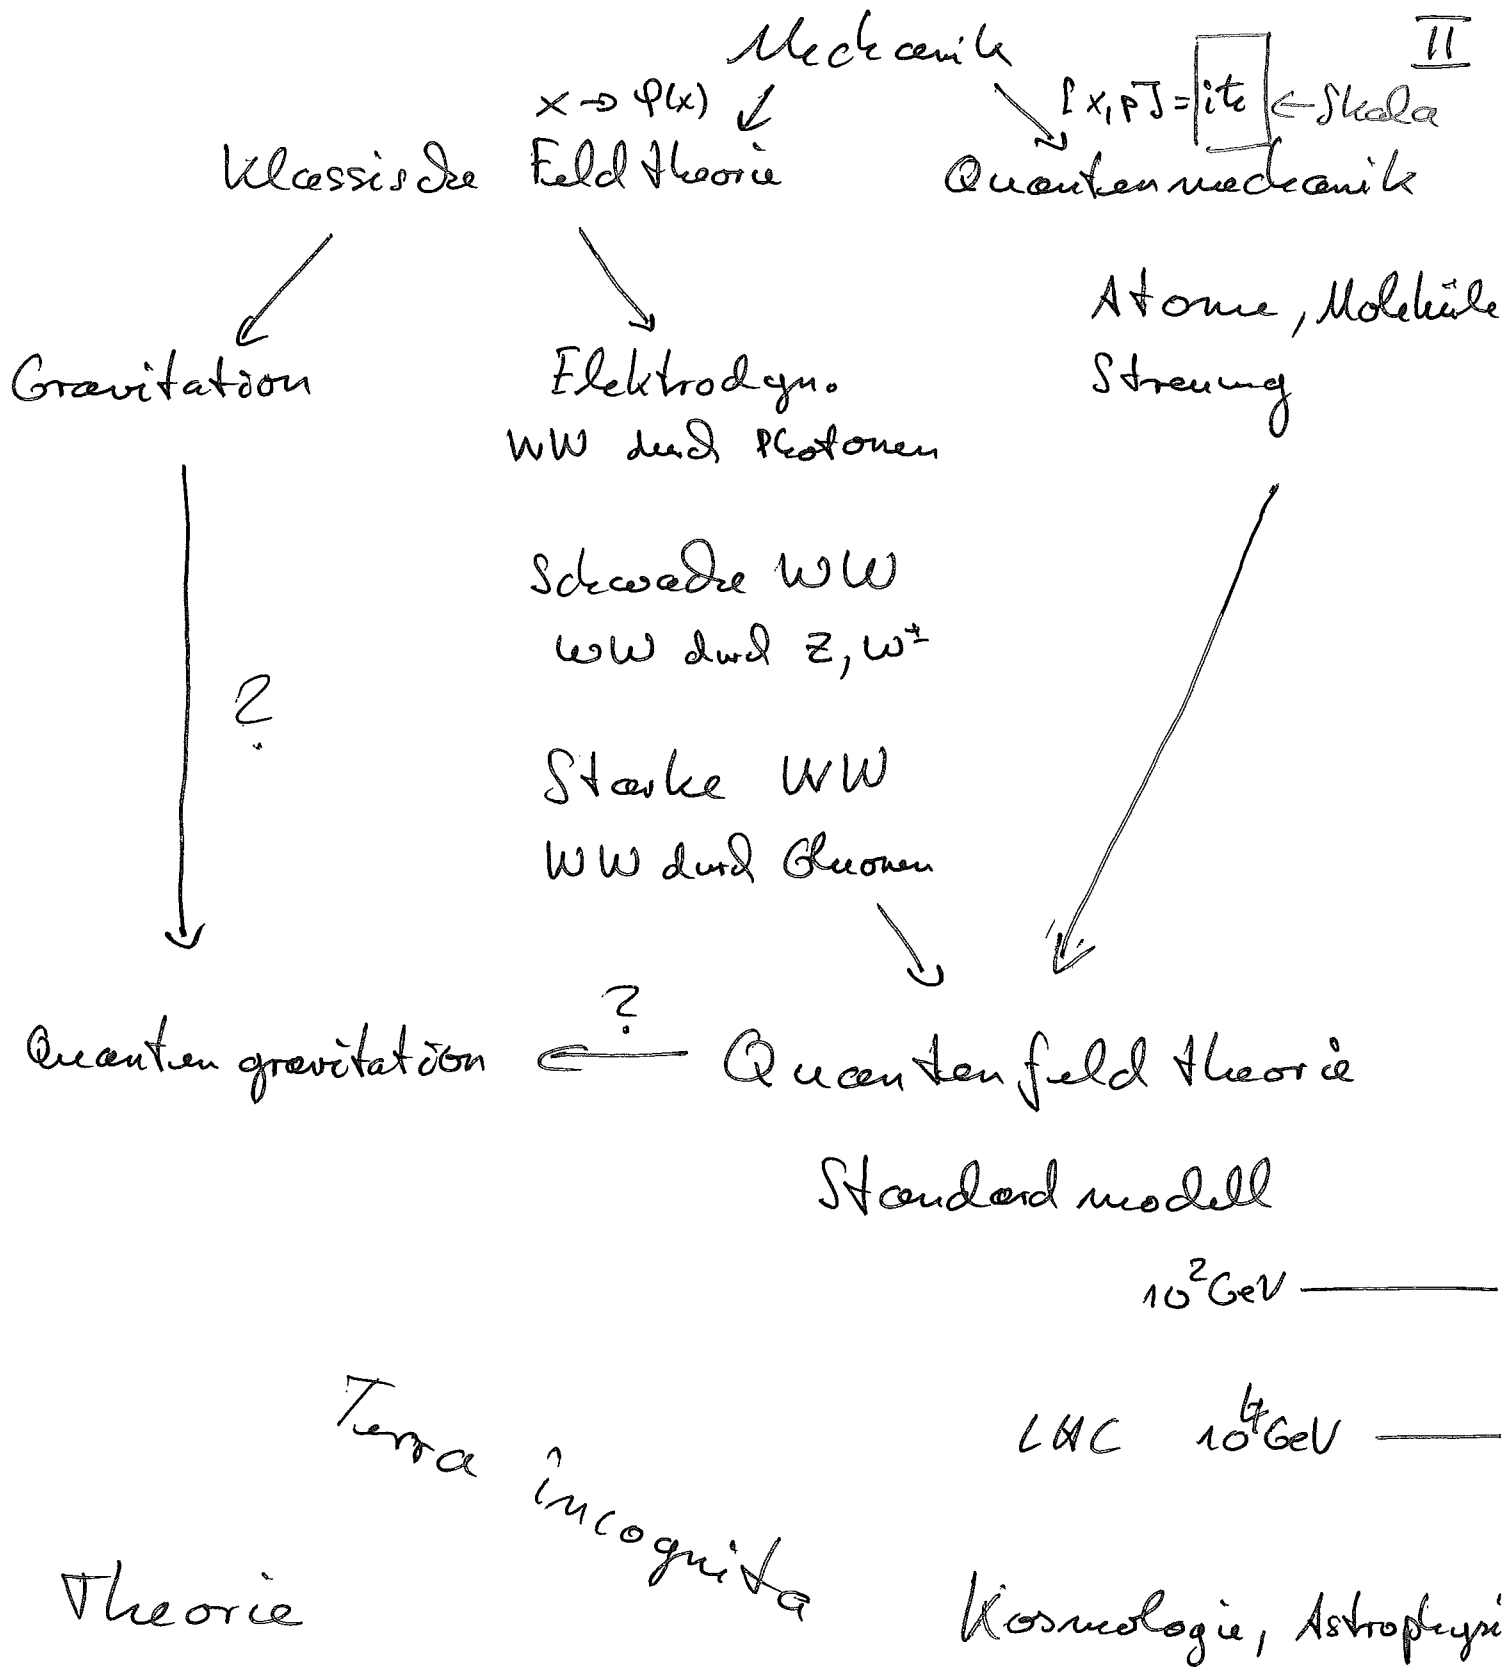 II
Mechanik
x → φ(x)
[x,p] = iℏ ← Skala
Klassische Feldtheorie
Quantenmechanik
Atome, Moleküle
Streuung
Gravitation
Elektrodyn.
WW durch Photonen
Schwache WW
WW durch Z, W±
?
Starke WW
WW durch Gluonen
?
Quantengravitation ← Quantenfeldtheorie
Standardmodell
10² GeV
LHC 10⁴ GeV
Terra incognita
Theorie
Kosmologie, Astrophysi